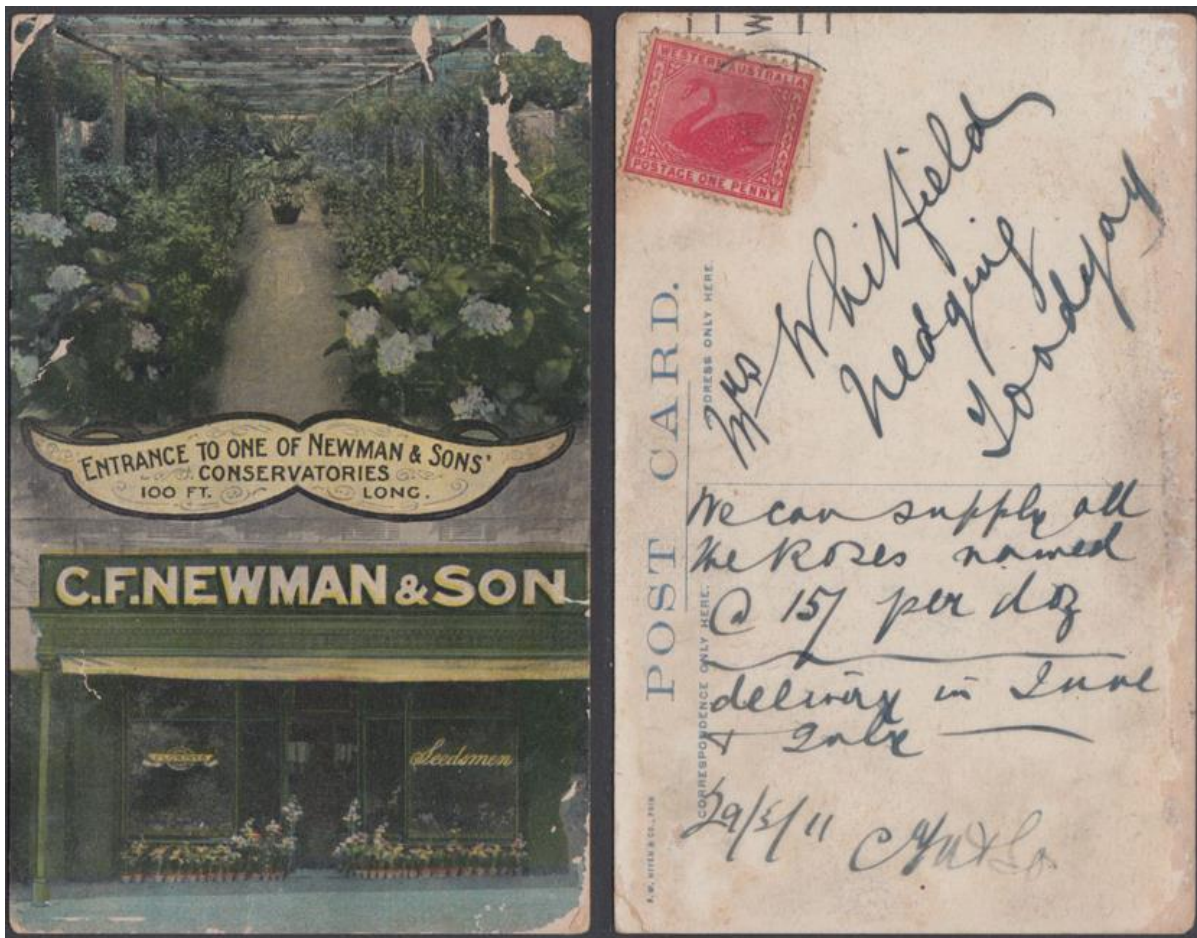 ENTRANCE TO ONE OF NEWMAN & SONS'
CONSERVATORIES
100 FT. LONG.
C.F.NEWMAN & SON
FLORISTS
Seedsmen
WESTERN AUSTRALIA
POSTAGE ONE PENNY
W
POST CARD.
ADDRESS ONLY HERE.
CORRESPONDENCE ONLY HERE.
Mrs Whitfield
Nedging
Toodyay
We can supply all
the Roses named
@ 15/ per doz
delivery in June
& July
29/5/11